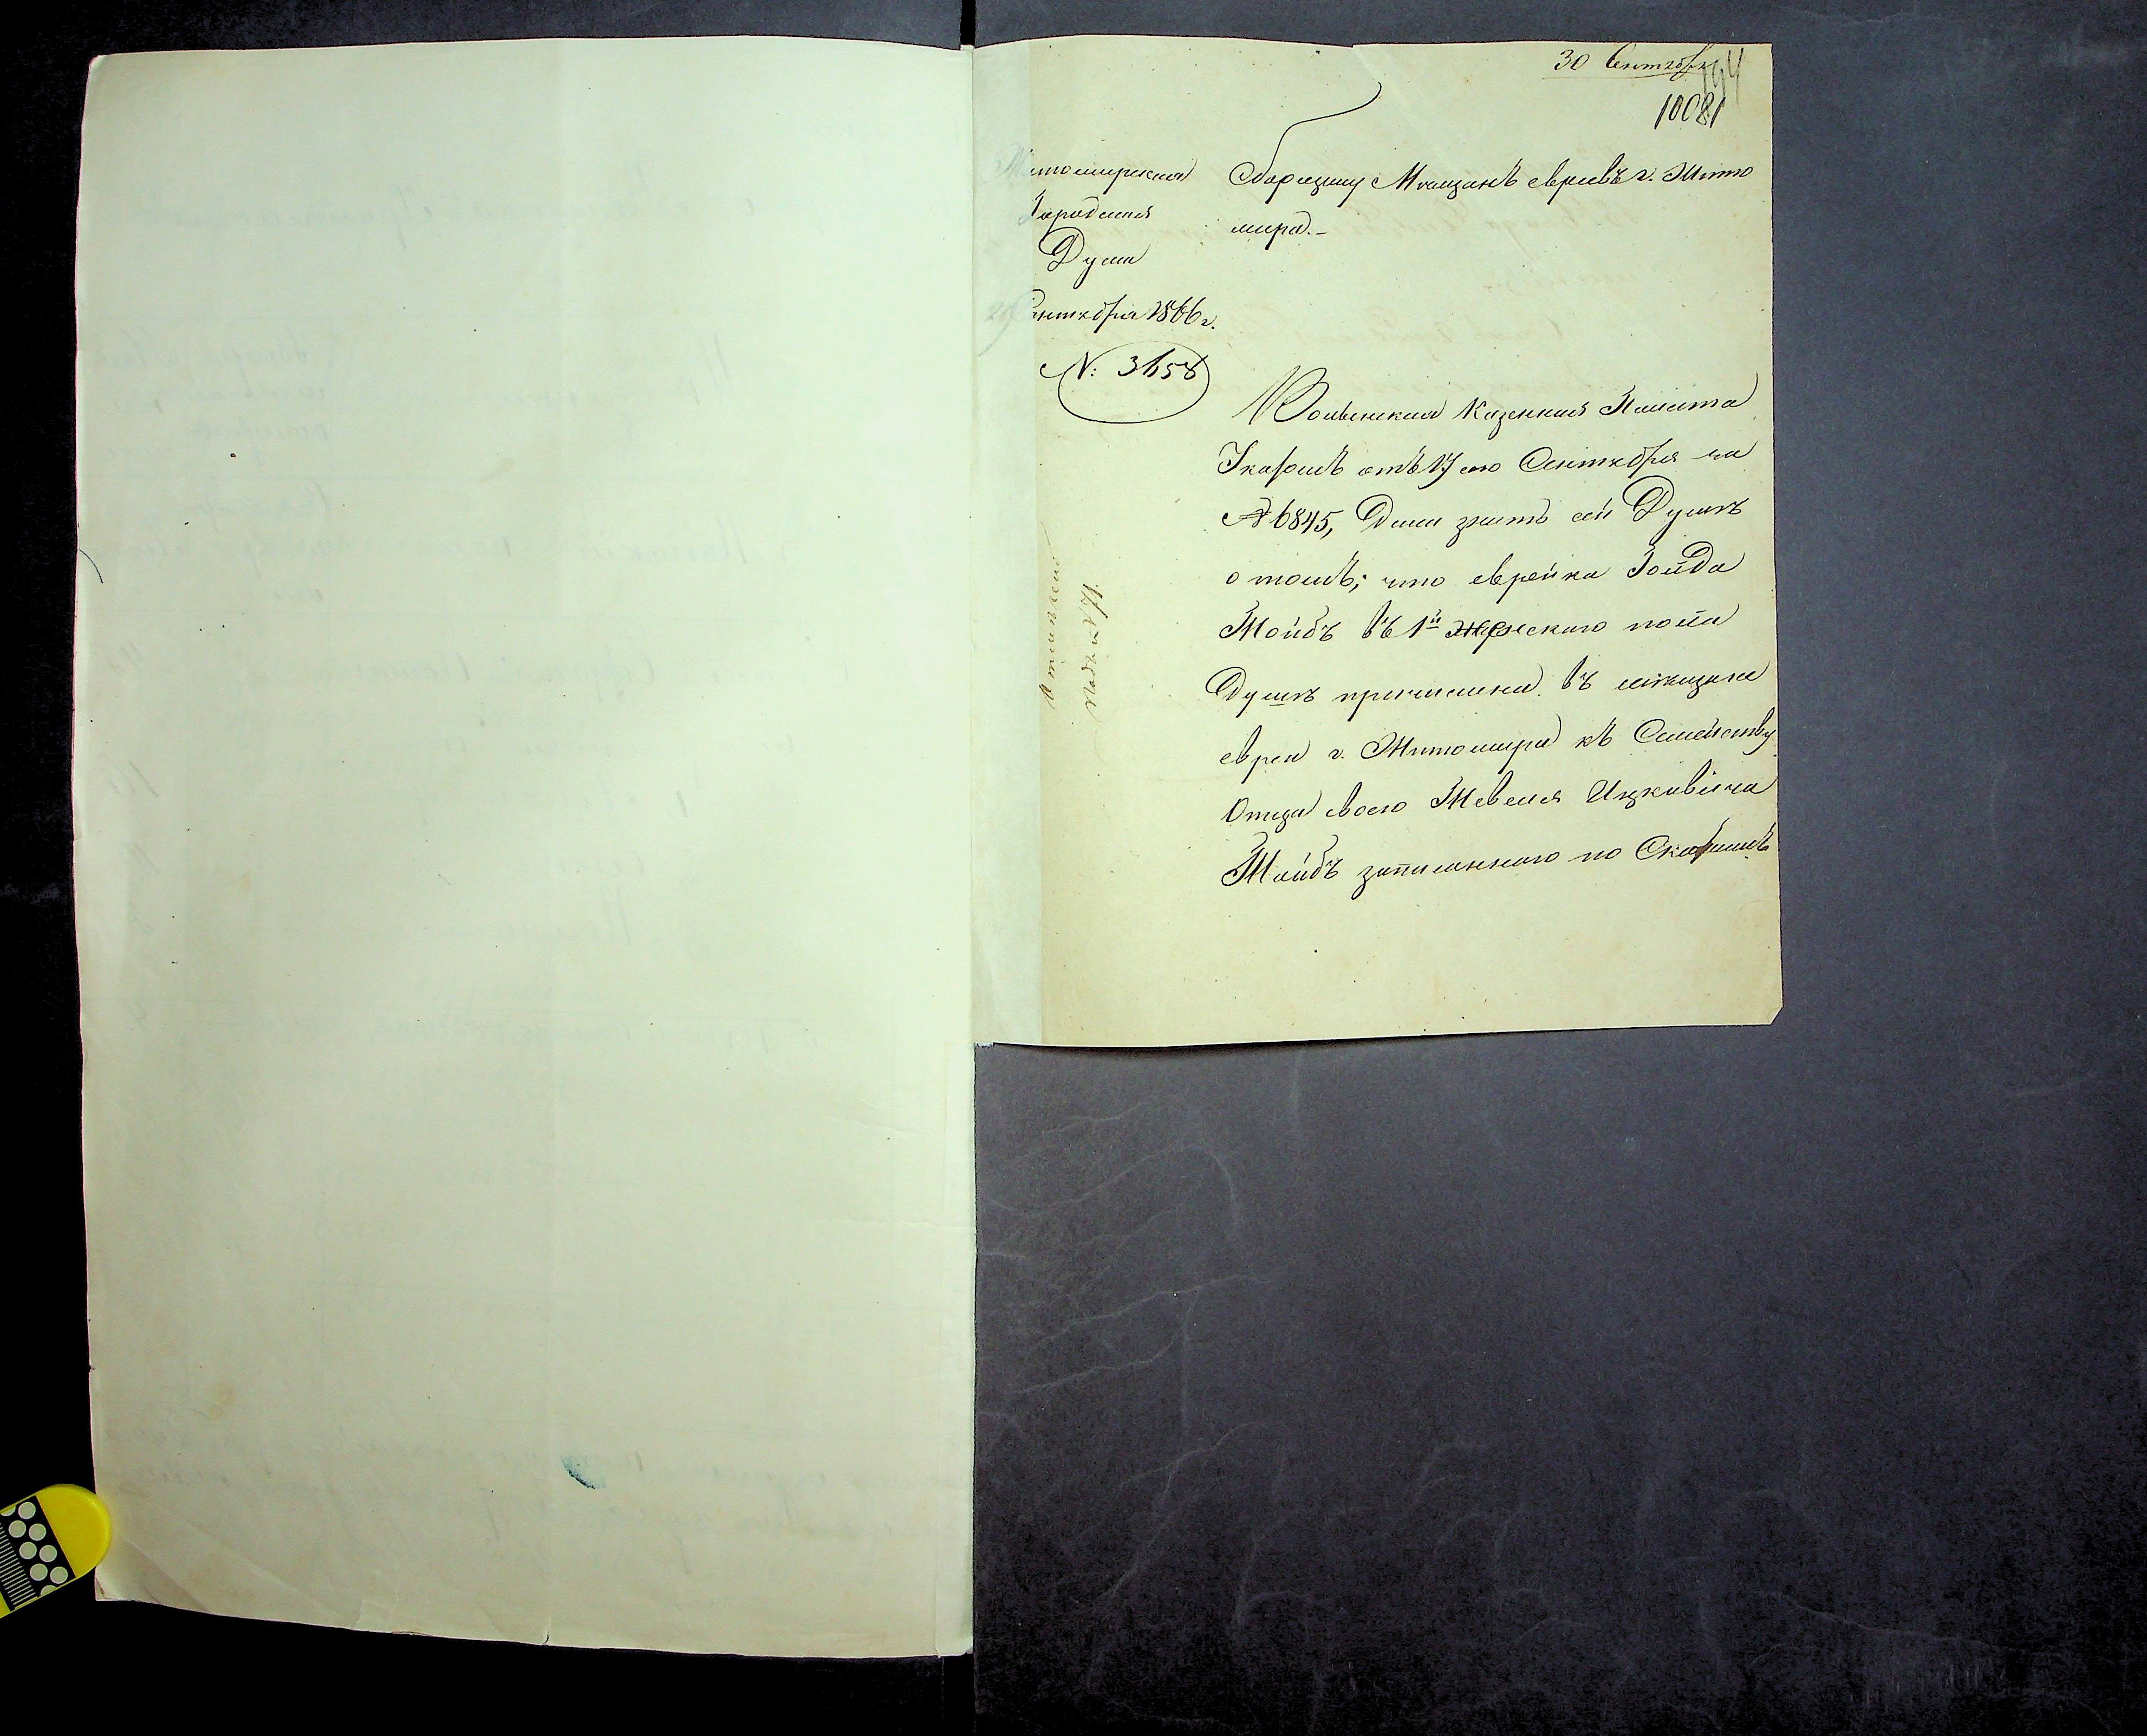 30 Сентября
194
10081
Житомирская
Городская
Дума
29 Сентября 1866 г.
№: 3658
Сборщику Мѣщанъ евреевъ г. Жито
мира.-
Волынская Казенная Палата
Указомъ отъ 17 сего Сентября за
№ 6845, Дала знать сей Думѣ
о томъ; что еврейка Гольда
Тойбъ въ 1й женского пола
Душѣ причислена въ мѣщане
евреи г. Житомира къ Семейству
Отца своего Шевеля Ицковича
Тойбъ записанного по Сказкамъ